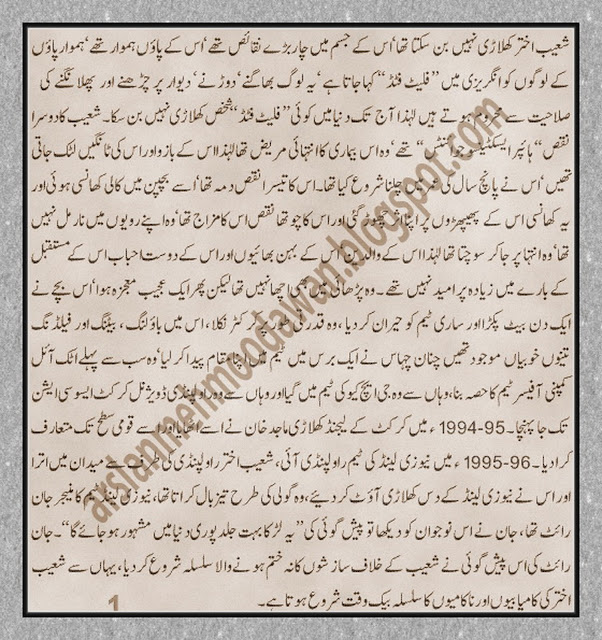 شعیب اختر کھلاڑی نہیں بن سکتا تھا‘ اس کے جسم میں چار بڑے نقائص تھے‘ اس کے پاؤں ہموار تھے‘ ہموار پاؤں
کے لوگوں کو انگریزی میں ’’فلیٹ فٹڈ‘‘ کہا جاتا ہے‘ یہ لوگ بھاگنے‘ دوڑنے‘ دیوار پر چڑھنے اور پھلانگنے کی
صلاحیت سے محروم ہوتے ہیں لہٰذا آج تک دنیا میں کوئی ’’فلیٹ فٹڈ‘‘ شخص کھلاڑی نہیں بن سکا۔ شعیب کا دوسرا
نقص ’’ہائپر ایکسٹینڈڈ جوائنٹس‘‘ تھے‘ وہ اس بیماری کا انتہائی مریض تھا لہٰذا اس کے بازو اور اس کی ٹانگیں لٹک جاتی
تھیں‘ اس نے پانچ سال کی عمر میں چلنا شروع کیا تھا۔ اس کا تیسرا نقص دمہ تھا‘ اسے بچپن میں کالی کھانسی ہوئی اور
یہ کھانسی اس کے پھیپھڑوں پر اپنا اثر چھوڑ گئی اور اس کا چوتھا نقص اس کا مزاج تھا‘ وہ اپنے رویوں میں نارمل نہیں
تھا‘ وہ انتہا پر جا کر سوچتا تھا لہٰذا اس کے والدین‘ اس کے بہن بھائیوں اور اس کے دوست احباب اس کے مستقبل
کے بارے میں زیادہ پرامید نہیں تھے۔ وہ پڑھائی میں بھی اچھا نہیں تھا لیکن پھر ایک عجیب معجزہ ہوا‘ اس بچے نے
ایک دن بیٹ پکڑا اور ساری ٹیم کو حیران کر دیا، وہ قدرتی طور پر کرکٹر نکلا، اس میں باؤلنگ، بیٹنگ اور فیلڈنگ
تینوں خوبیاں موجود تھیں چنانچہ اس نے ایک برس میں ٹیم میں اپنا مقام پیدا کر لیا‘ وہ سب سے پہلے اٹک آئل
کمپنی آفیسر ٹیم کا حصہ بنا، وہاں سے وہ جی ایچ کیو کی ٹیم میں گیا اور وہاں سے وہ راولپنڈی ڈویژنل کرکٹ ایسوسی ایشن
تک جا پہنچا۔ 95-1994ء میں کرکٹ کے لیجنڈ کھلاڑی ماجد خان نے اسے اٹھایا اور اسے قومی سطح تک متعارف
کرا دیا۔ 96-1995ء میں نیوزی لینڈ کی ٹیم راولپنڈی آئی، شعیب اختر راولپنڈی کی طرف سے میدان میں اترا
اور اس نے نیوزی لینڈ کے دس کھلاڑی آؤٹ کر دیئے، وہ گولی کی طرح تیز بال کراتا تھا، نیوزی لینڈ ٹیم کا منیجر جان
رائٹ تھا، جان نے اس نوجوان کو دیکھا تو پیش گوئی کی ’’یہ لڑکا بہت جلد پوری دنیا میں مشہور ہو جائے گا‘‘۔ جان
رائٹ کی اس پیش گوئی نے شعیب کے خلاف سازشوں کا نہ ختم ہونے والا سلسلہ شروع کر دیا، یہاں سے شعیب
اختر کی کامیابیوں اور ناکامیوں کا سلسلہ بیک وقت شروع ہوتا ہے۔
1
arslanmehmoodawan.blogspot.com